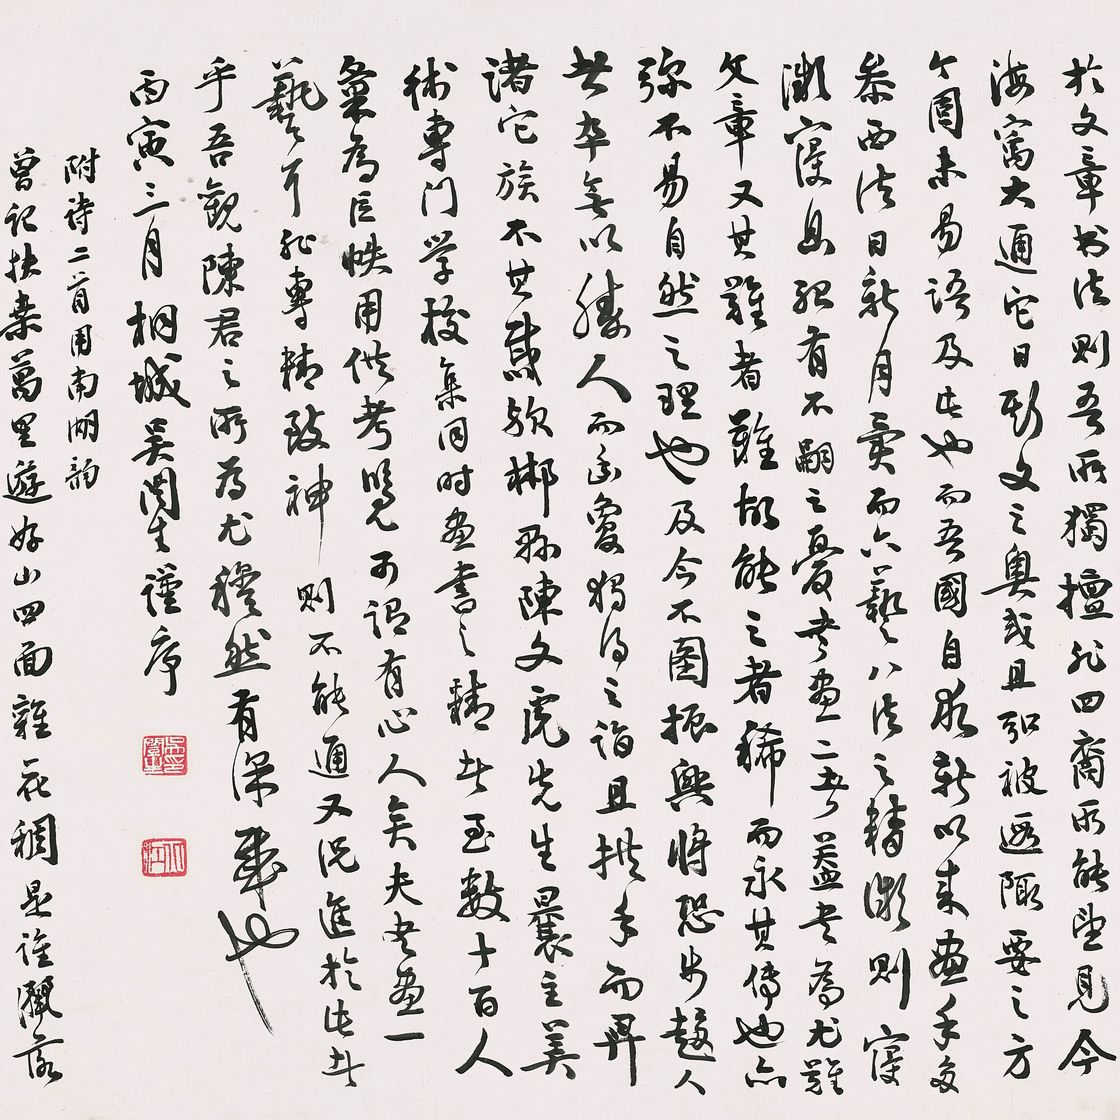 於文章书法则吾所獨擅非四裔所能望見今
海寓大通它日斯文之奥或且弘被遐陬要之方
今固未易語及此也而吾國自歐新以来畫手多
叅西法日新月異而六藝八法之精漸則寖
漸寖息恐有不嗣之憂書畫二者益書為尤難
文章又其難者難故能之者稀而永其傳也亦
弥不易自然之理也及今不圖振興將恐步趨人
後卒無以勝人而吾夐獨得之詣且拱手而畀
諸它族不甚感欤郴縣陳文虎先生曩主美
術專门学校集同时畫書之精者至數十百人
彙為巨帙用供考览可谓有心人矣夫书畫一
藝耳非專精致神则不能通又况進於此者
乎吾觀陳君之所为尤穆然有深感也
丙寅三月桐城吴闿生谨序
附诗二首用南湖韵
曾记扶桒萬里遊好山四面雜花稠是誰飄落